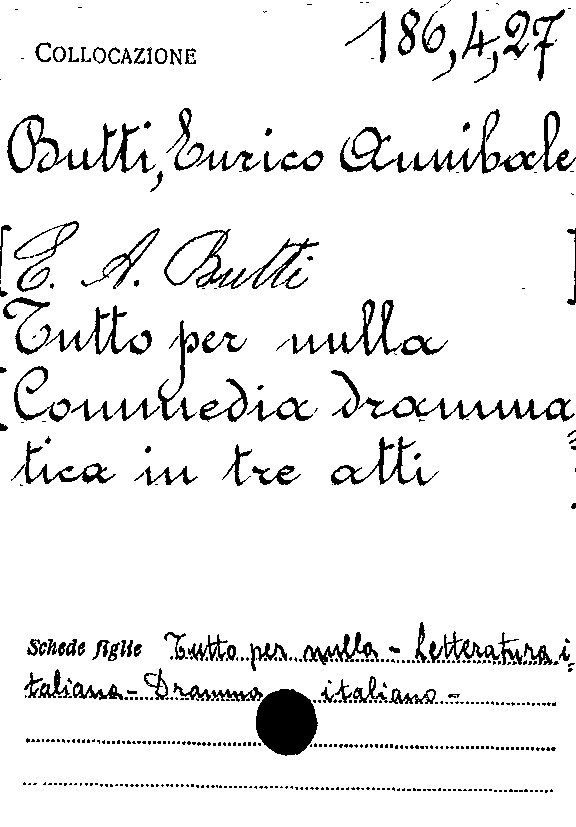 COLLOCAZIONE 186,4,27
Butti, Enrico Annibale
[E. A. Butti]
Tutto per nulla
[Commedia dramma
tica in tre atti
Schede figlie Tutto per nulla - Letteratura i=
taliana - Dramma italiano -